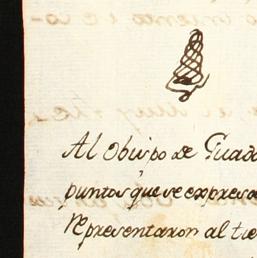 Al Obispo de Guada
puntos que se expresa
representaron al tie